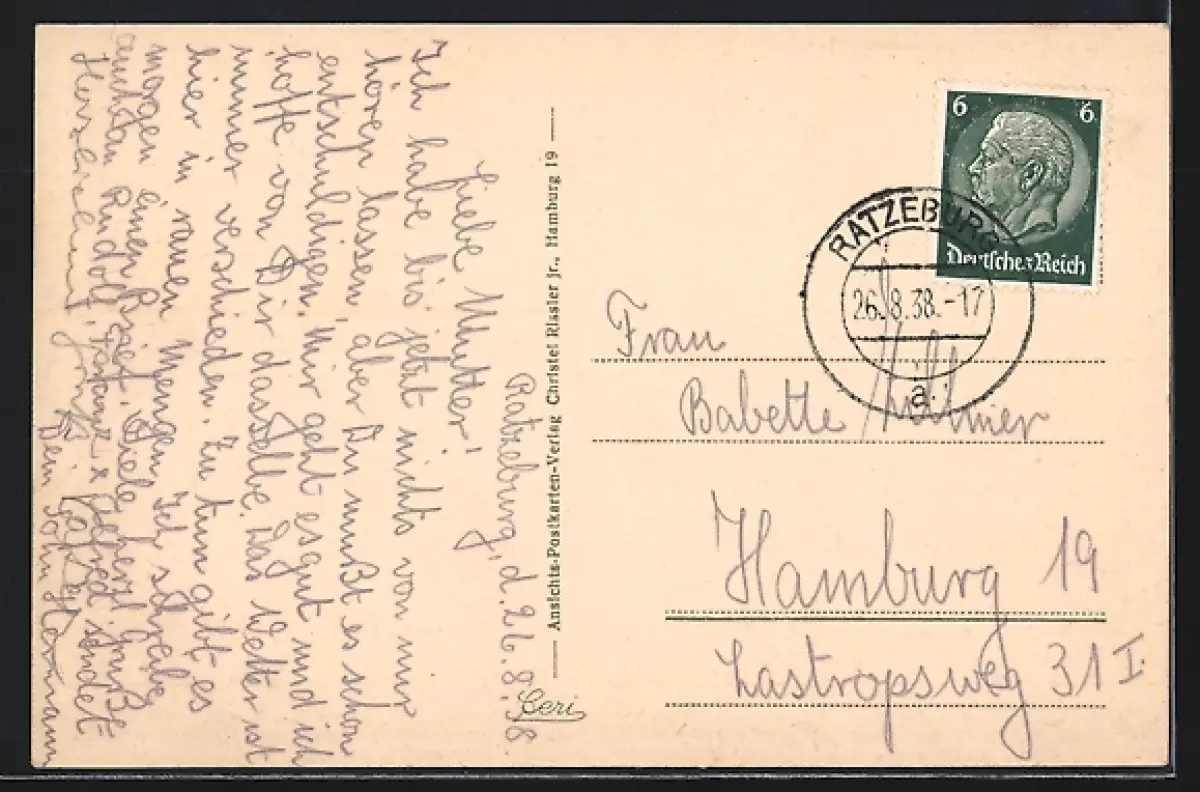 Ratzeburg, d. 26.8.38.
Liebe Mutter!
Ich habe bis jetzt nichts von mir
hören lassen, aber Du mußt es schon
entschuldigen. Mir geht es gut und ich
hoffe von Dir dasselbe. Das Wetter ist
immer verschieden. Zu tun gibt es
hier in rauen Mengen. Ich schreibe
morgen einen Brief. Viele herzl. Grüße
auch an Rudolf, x Alfred sendet
Dein Sohn Hermann
Ansichts-Postkarten-Verlag Christel Rissler jr., Hamburg 19
Ceri
6 6
Deutsches Reich
RATZEBURG
26.8.38.-17
a
Frau
Babette
Hamburg 19
Lastropsweg 31 I.